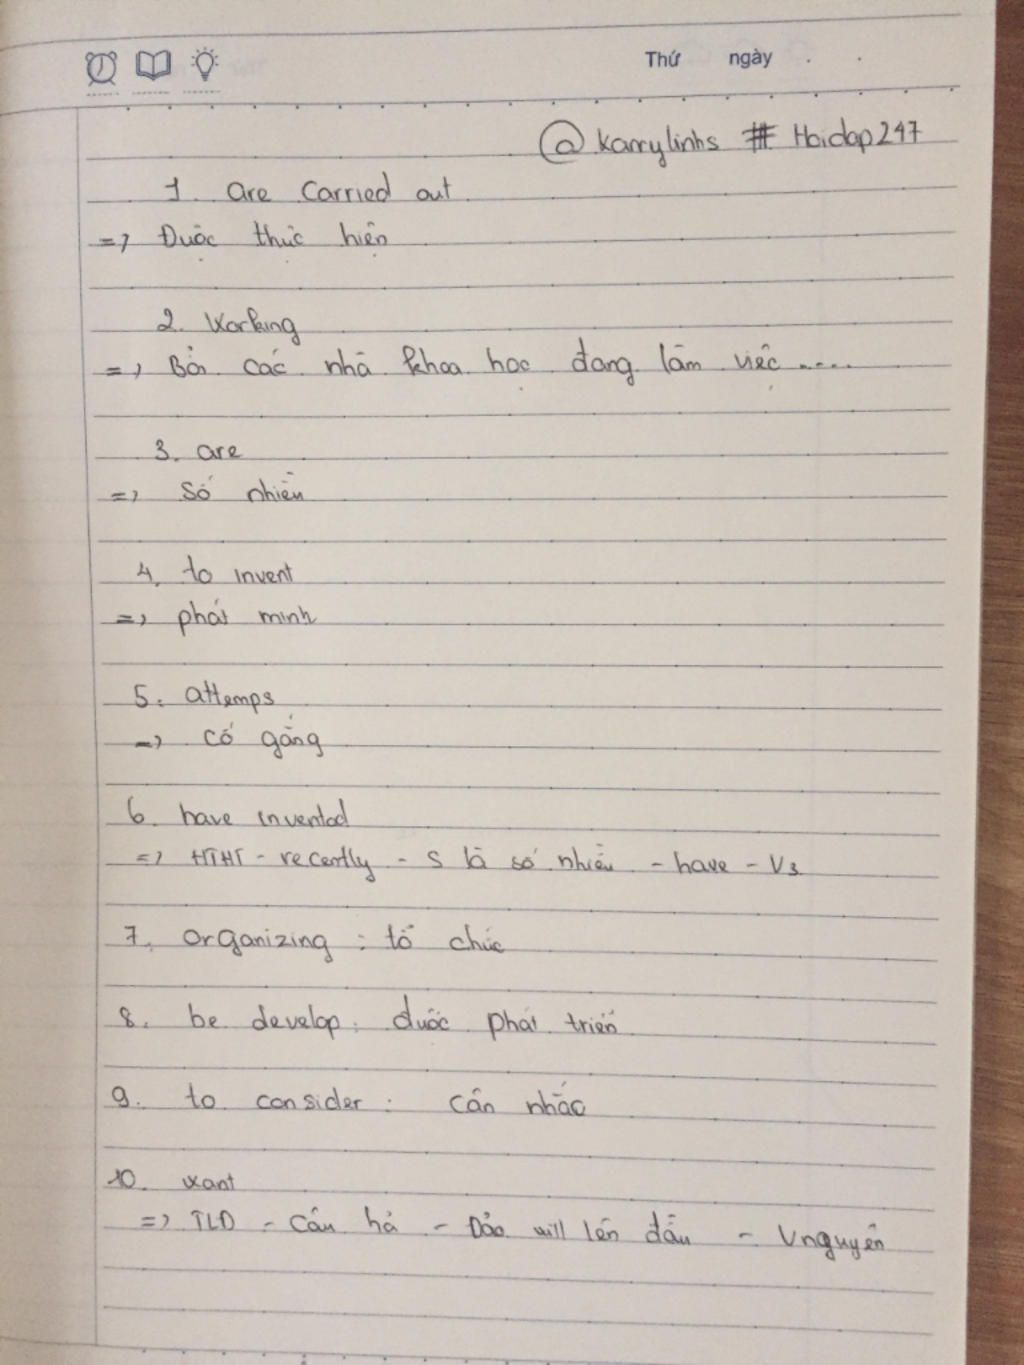 Thứ ngày . .
@ karrylinhs # Hoidap247
1. are carried out
=> Được thực hiện
2. Working
=> Bởi các nhà khoa học đang làm việc ....
3. are
=> Số nhiều
4. to invent
=> phát minh
5. attemps
=> cố gắng
6. have invented
=> HTHT - recently - S là số nhiều - have - V3
7. organizing : tổ chức
8. be develop : được phát triển
9. to consider : cân nhắc
10. want
=> TLD - Câu hỏi - Đảo will lên đầu - V nguyên